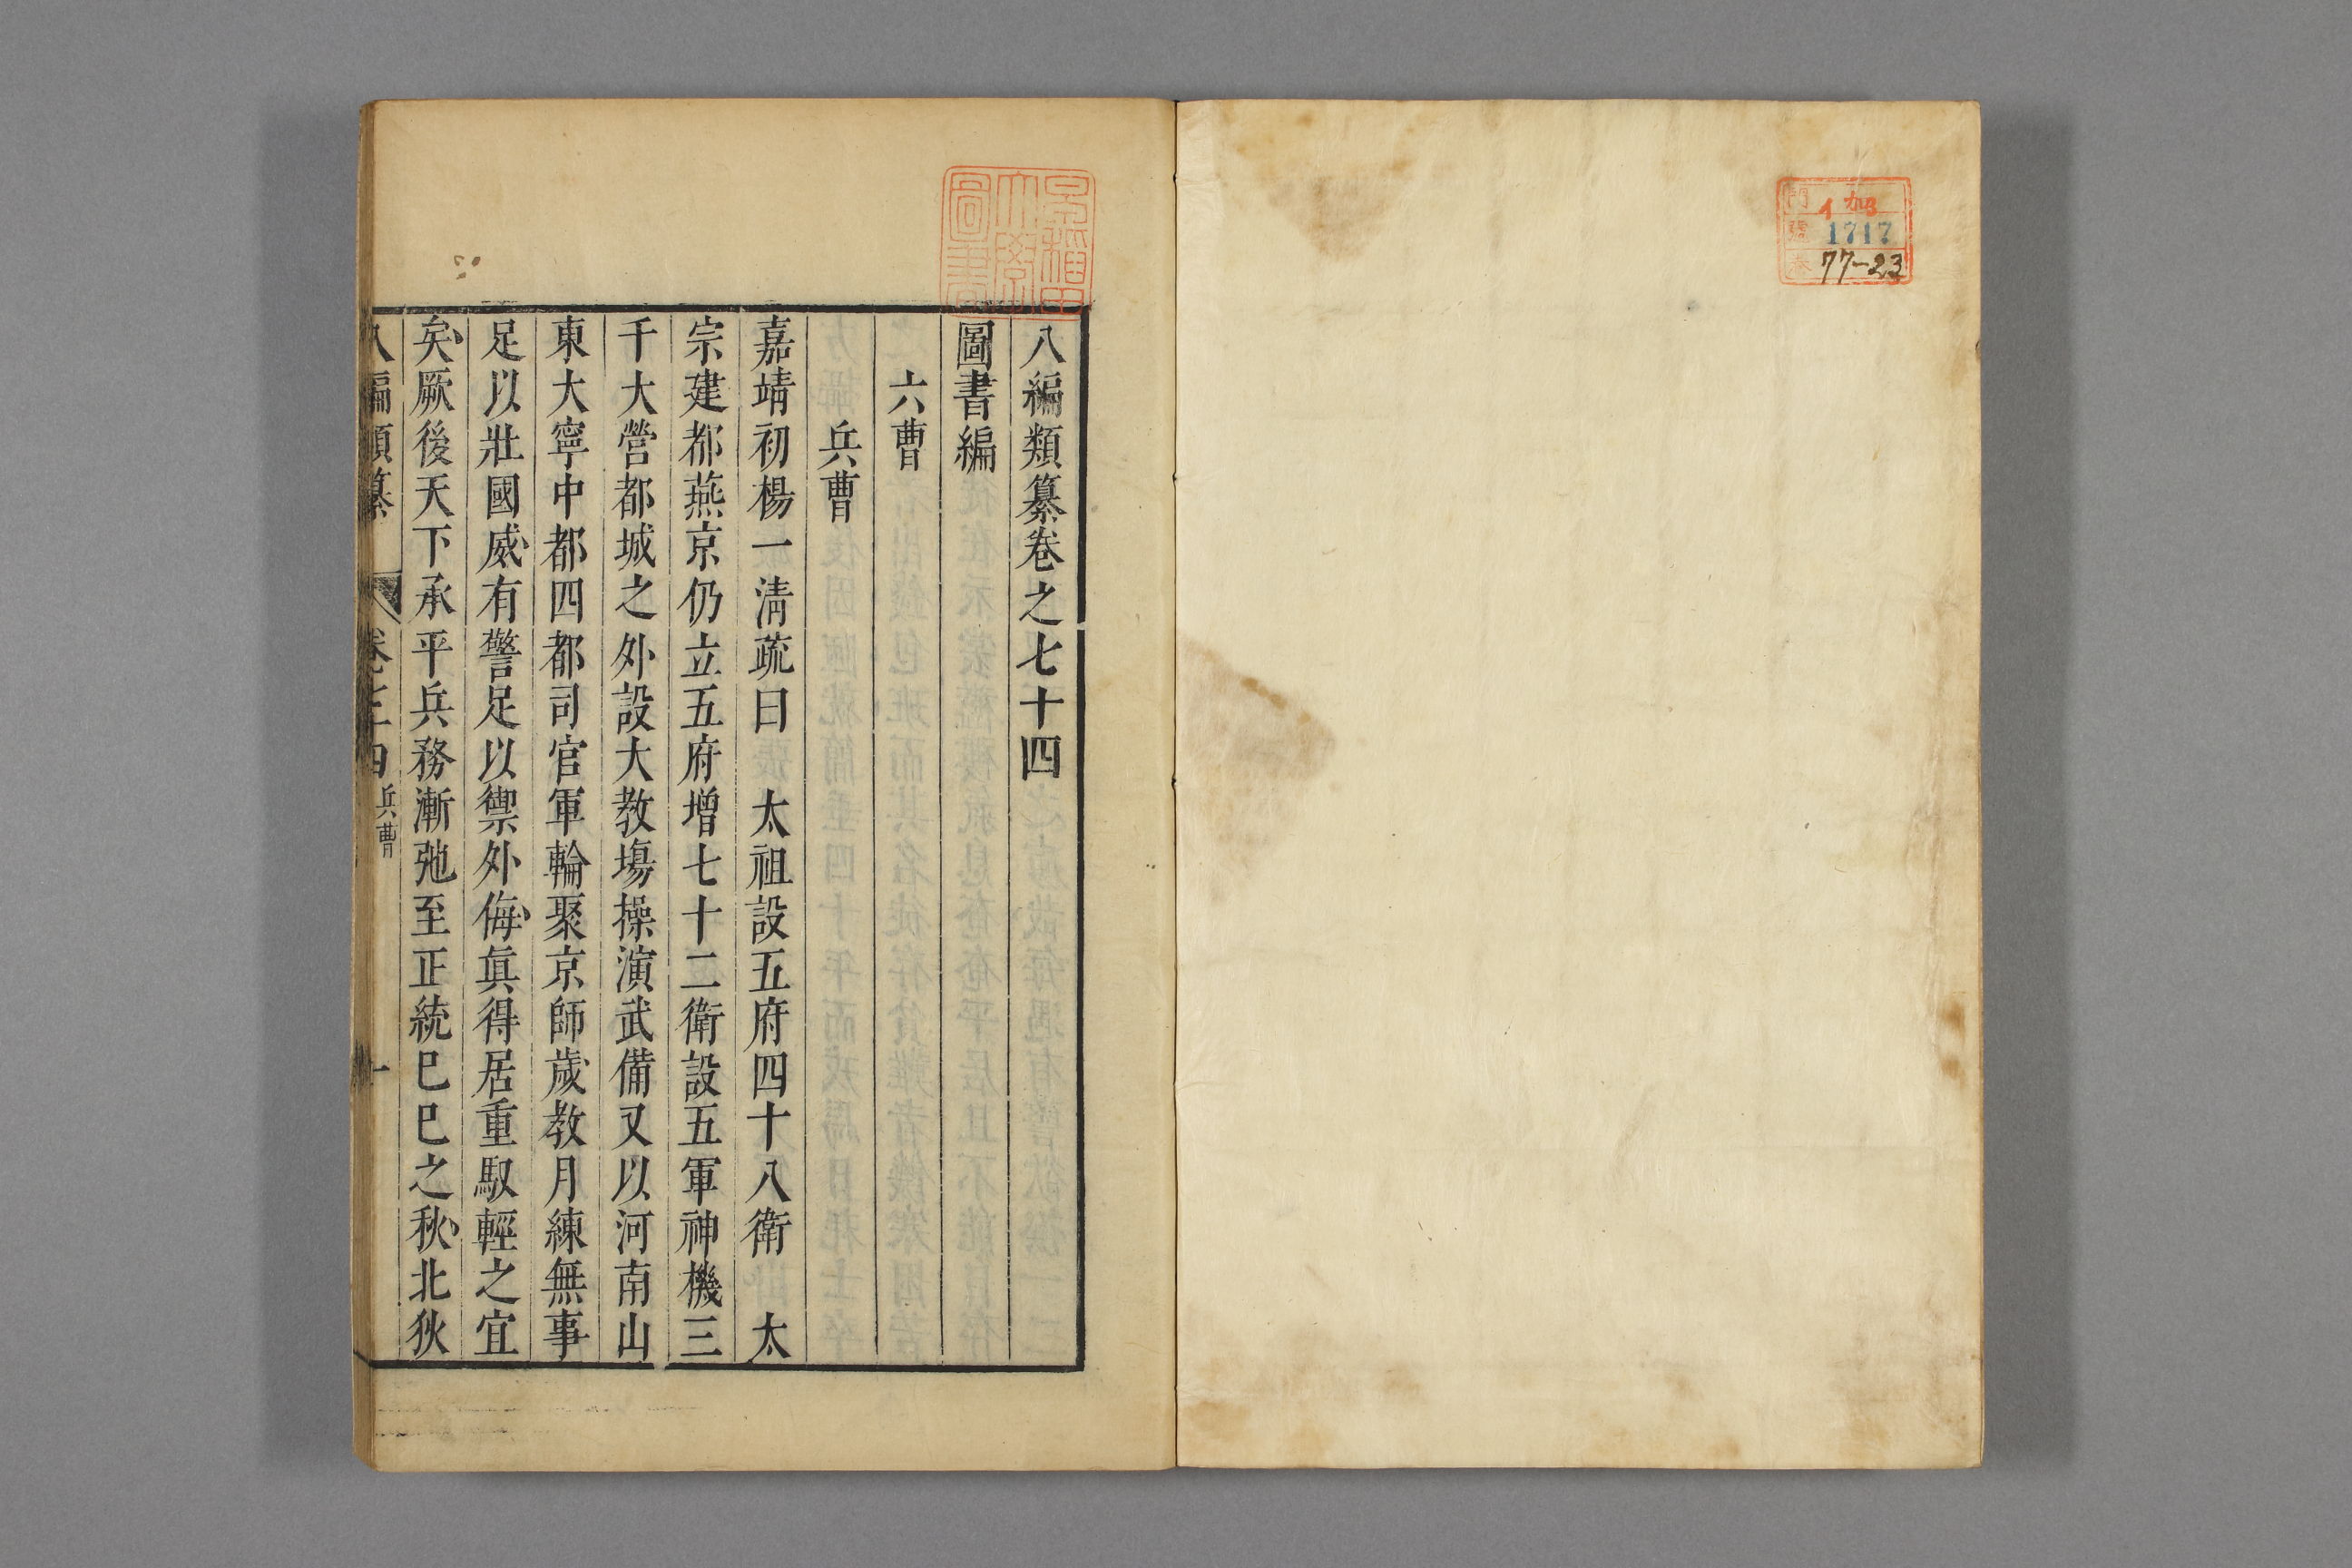 門 イ 加3
號 1717
巻 77-23
早稲田
大學
圖書
八編類纂卷之七十四
圖書編
六曹
兵曹
嘉靖初楊一清疏曰 太祖設五府四十八衛 太
宗建都燕京仍立五府增七十二衛設五軍神機三
千大營都城之外設大教場操演武備又以河南山
東大寧中都四都司官軍輪聚京師歲教月練無事
足以壯國威有警足以禦外侮真得居重馭輕之宜
矣厥後天下承平兵務漸弛至正統巳巳之秋北狄
八編類纂 卷七十四 兵曹 一